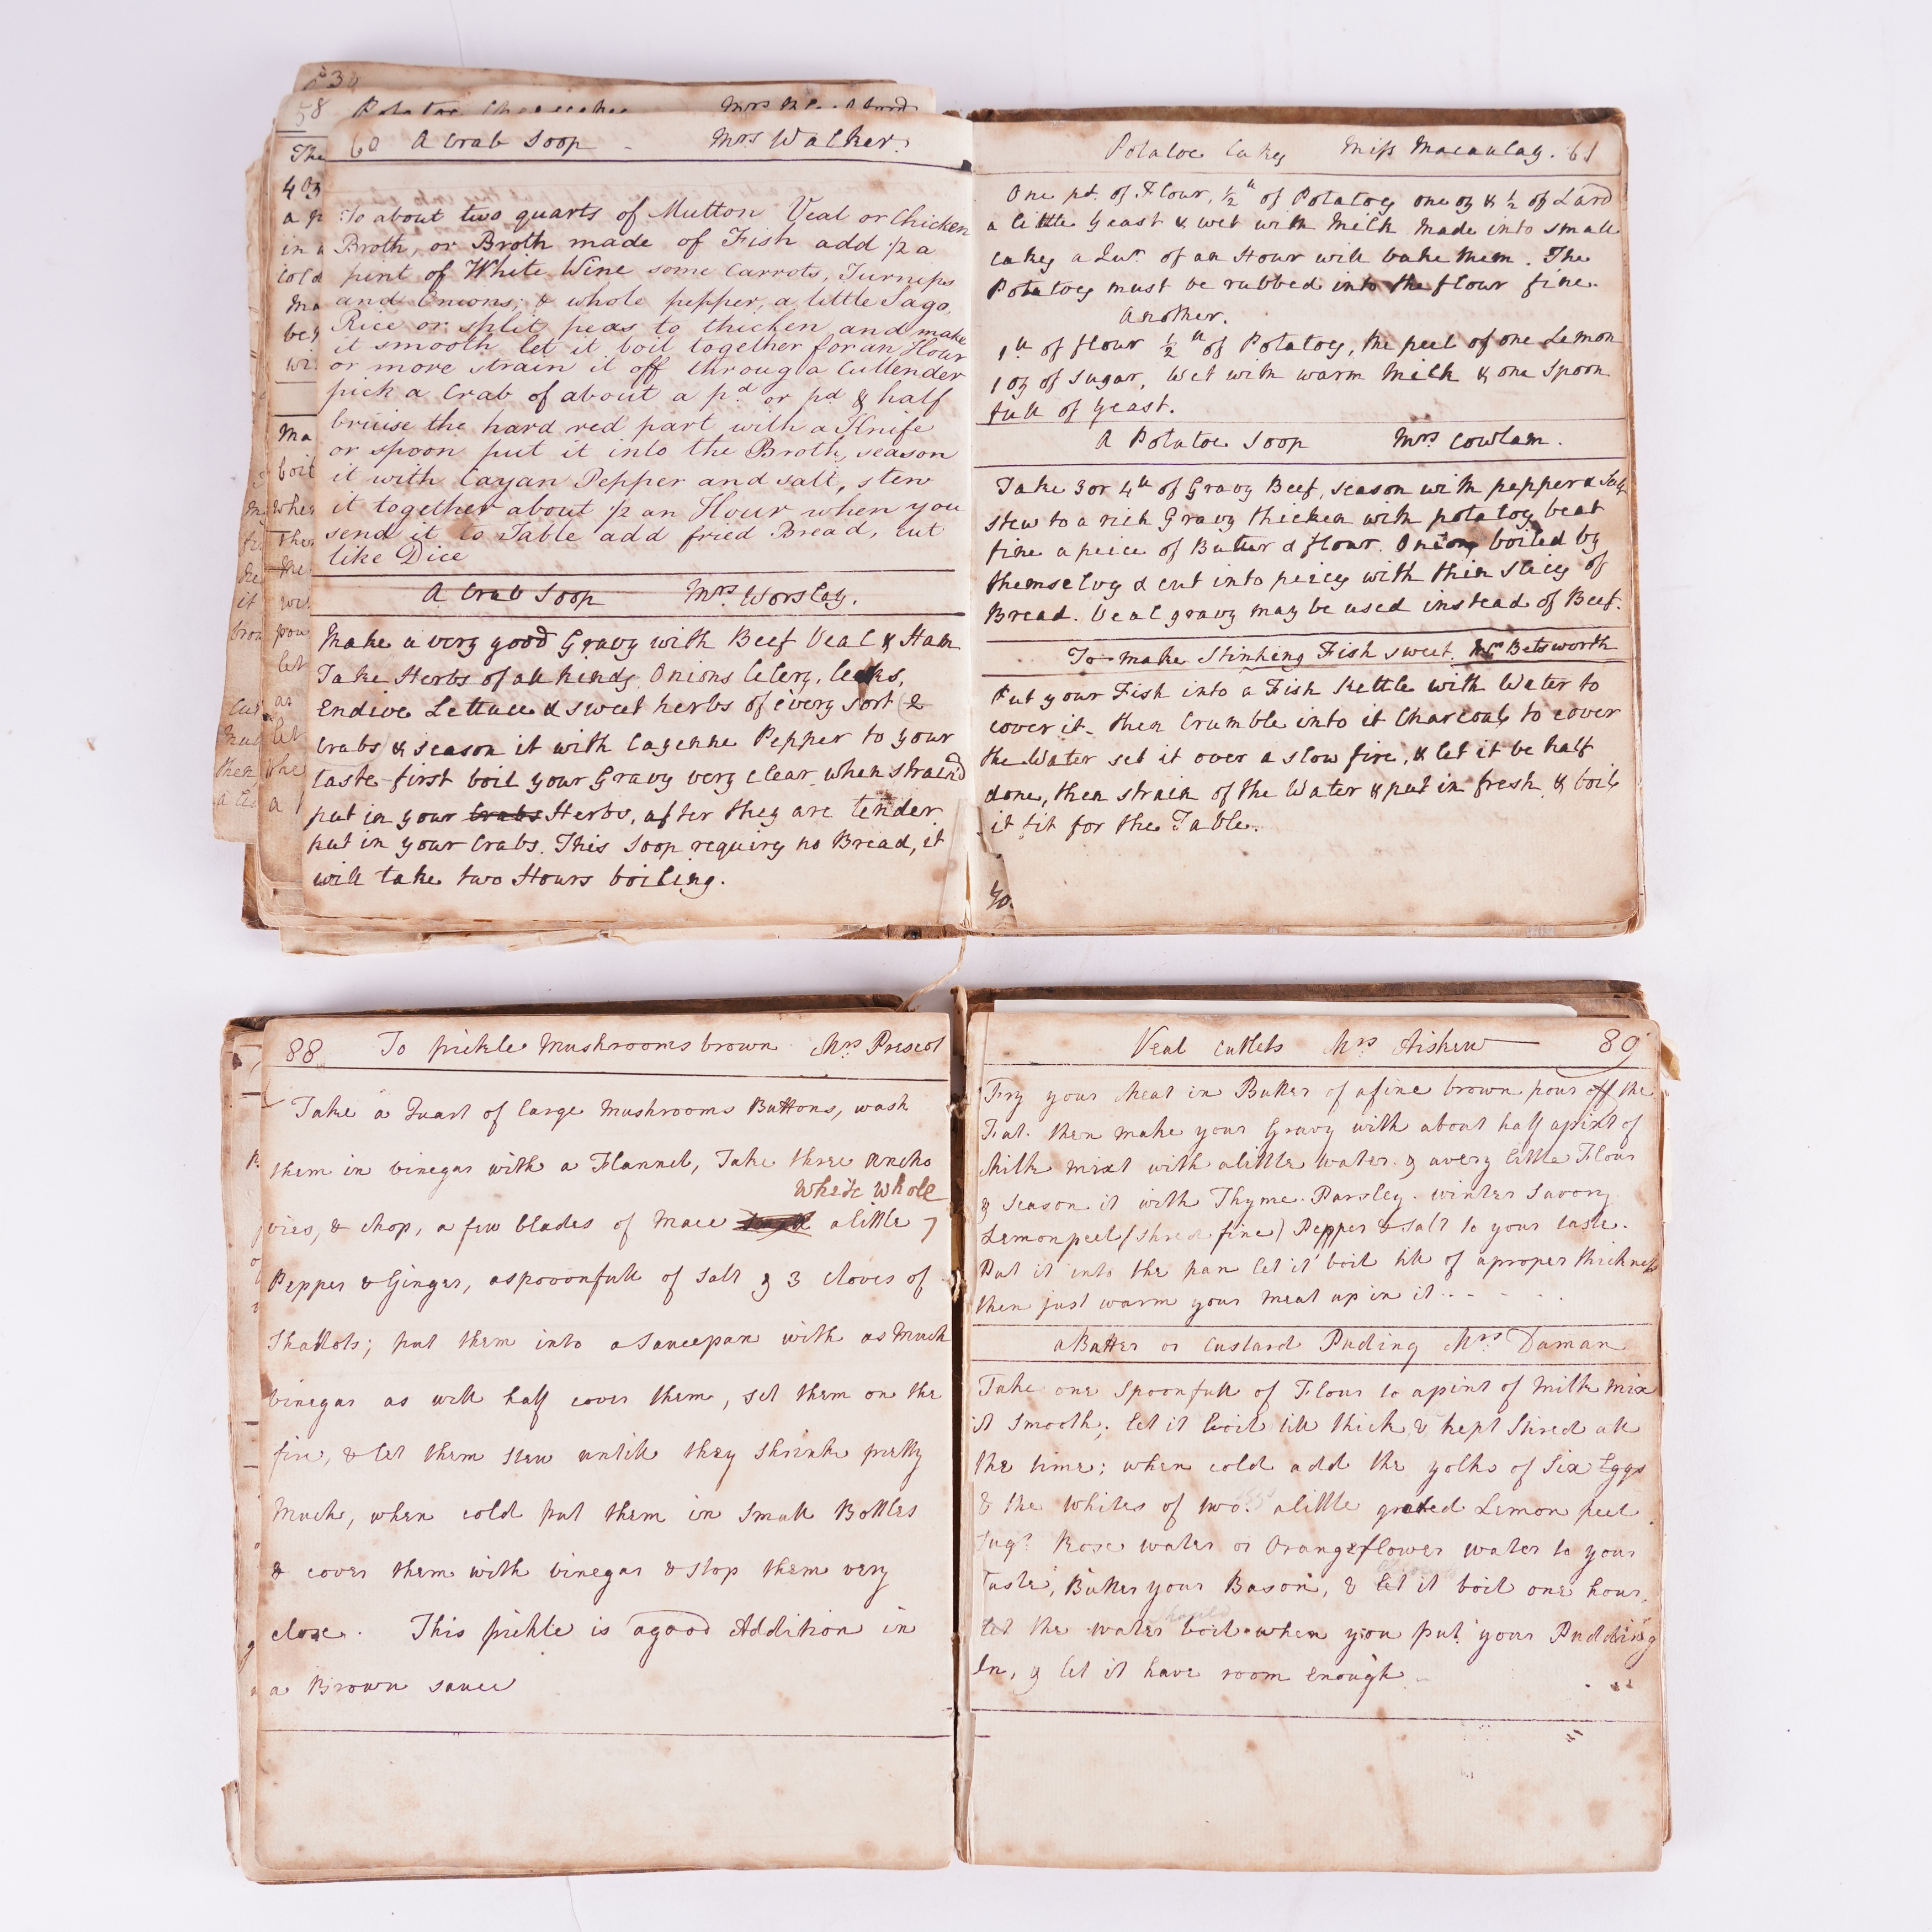 30
58 Potatoe Cheesecakes Mrs
60 A Crab Soop - Mrs Walker.
To about two quarts of Mutton Veal or Chicken
Broth, or Broth made of Fish add 1/2 a
pint of White Wine some Carrots, Turnips
and Onions, & whole pepper, a little Sago,
Rice or split peas to thicken and make
it smooth let it boil together for an Hour
or more strain it off throug a Cullender
pick a Crab of about a pd or pd & half
bruise the hard red part with a Knife
or spoon put it into the Broth, season
it with Cayan Pepper and salt, stew
it together about 1/2 an Hour when you
send it to Table add fried Bread, cut
like Dice
A Crab Soop Mrs. Worsley.
Make a very good Gravy with Beef Veal & Ham
Take Herbs of all kinds, Onions Celery, leeks,
Endive Lettuce & sweet herbs of every sort (2
Crabs & season it with Cayenne Pepper to your
taste first boil your Gravy very clear when strain'd
put in your Crabs Herbs, after they are tender
put in your Crabs. This Soop requires no Bread, it
will take two Hours boiling.
Potatoe Cakes Miss Macaulay. 61
One pd. of Flour, 1/2 ll of Potatoes one oz & 1/2 of Lard
a little yeast & wet with Milk made into small
Cakes a Qur. of an Hour will bake them. The
Potatoes must be rubbed into the flour fine.
Another.
1 ll of flour 1/2 ll of Potatoes, the peel of one Lemon
1 oz of sugar, Wet with warm Milk & one Spoon
full of Yeast.
A Potatoe Soop Mrs Cowlam.
Take 3 or 4 ll of Gravy Beef, season with pepper & Salt
stew to a rich Gravy thicken with potatoes beat
fine a peice of Butter & flour. Onions boiled by
themselves & cut into peices with thin slices of
Bread. Veal gravy may be used instead of Beef.
To make Stinking Fish sweet. Mrs Betsworth
Put your Fish into a Fish Kettle with Water to
cover it. then Crumble into it Charcoal to cover
the Water set it over a slow fire, & let it be half
done, then strain of the Water & put in fresh & boil
it fit for the Table.
88 To pickle Mushrooms brown Mrs Prescot
Take a Quart of large Mushrooms Buttons, wash
them in vinegar with a Flannel, Take three Ancho
White Whole
vies, & chop, a few blades of Mace a little
Pepper & Ginger, a spooonfull of Salt & 3 cloves of
Shallots; put them into a Saucepan with as Much
vinegar as will half cover them, set them on the
fire, & let them stew untill they shrink pretty
Much, when cold put them in Small Bottles
& cover them with vinegar & stop them very
close. This pickle is a good Addition in
a Brown sauce
Veal Cutlets Mrs Aishew 89
Fry your Meat in Butter of a fine brown pour off the
Fat. then make your Gravy with about half a pint of
Milk mixt with a little water. & a very little Flour
& Season it with Thyme. Parsley. winter Savory
Lemonpeel (shred fine) Pepper & Salt to your taste.
Put it into the pan let it boil till of a proper thickness
then just warm your meat up in it
a Batter or Custard Puding Mrs. Daman
Take one Spoonfull of Flour to a pint of Milk Mix
it Smooth; let it boil till thick & kept Stired all
the time; when cold add the yolks of Six Eggs
& the whites of two. a little grated Lemon peel
Sugr. Rose water or Orangeflower water to your
Taste; Butter your Bason, & let it boil one hour,
let the water boil when you put your Pudding
In, & let it have room enough.